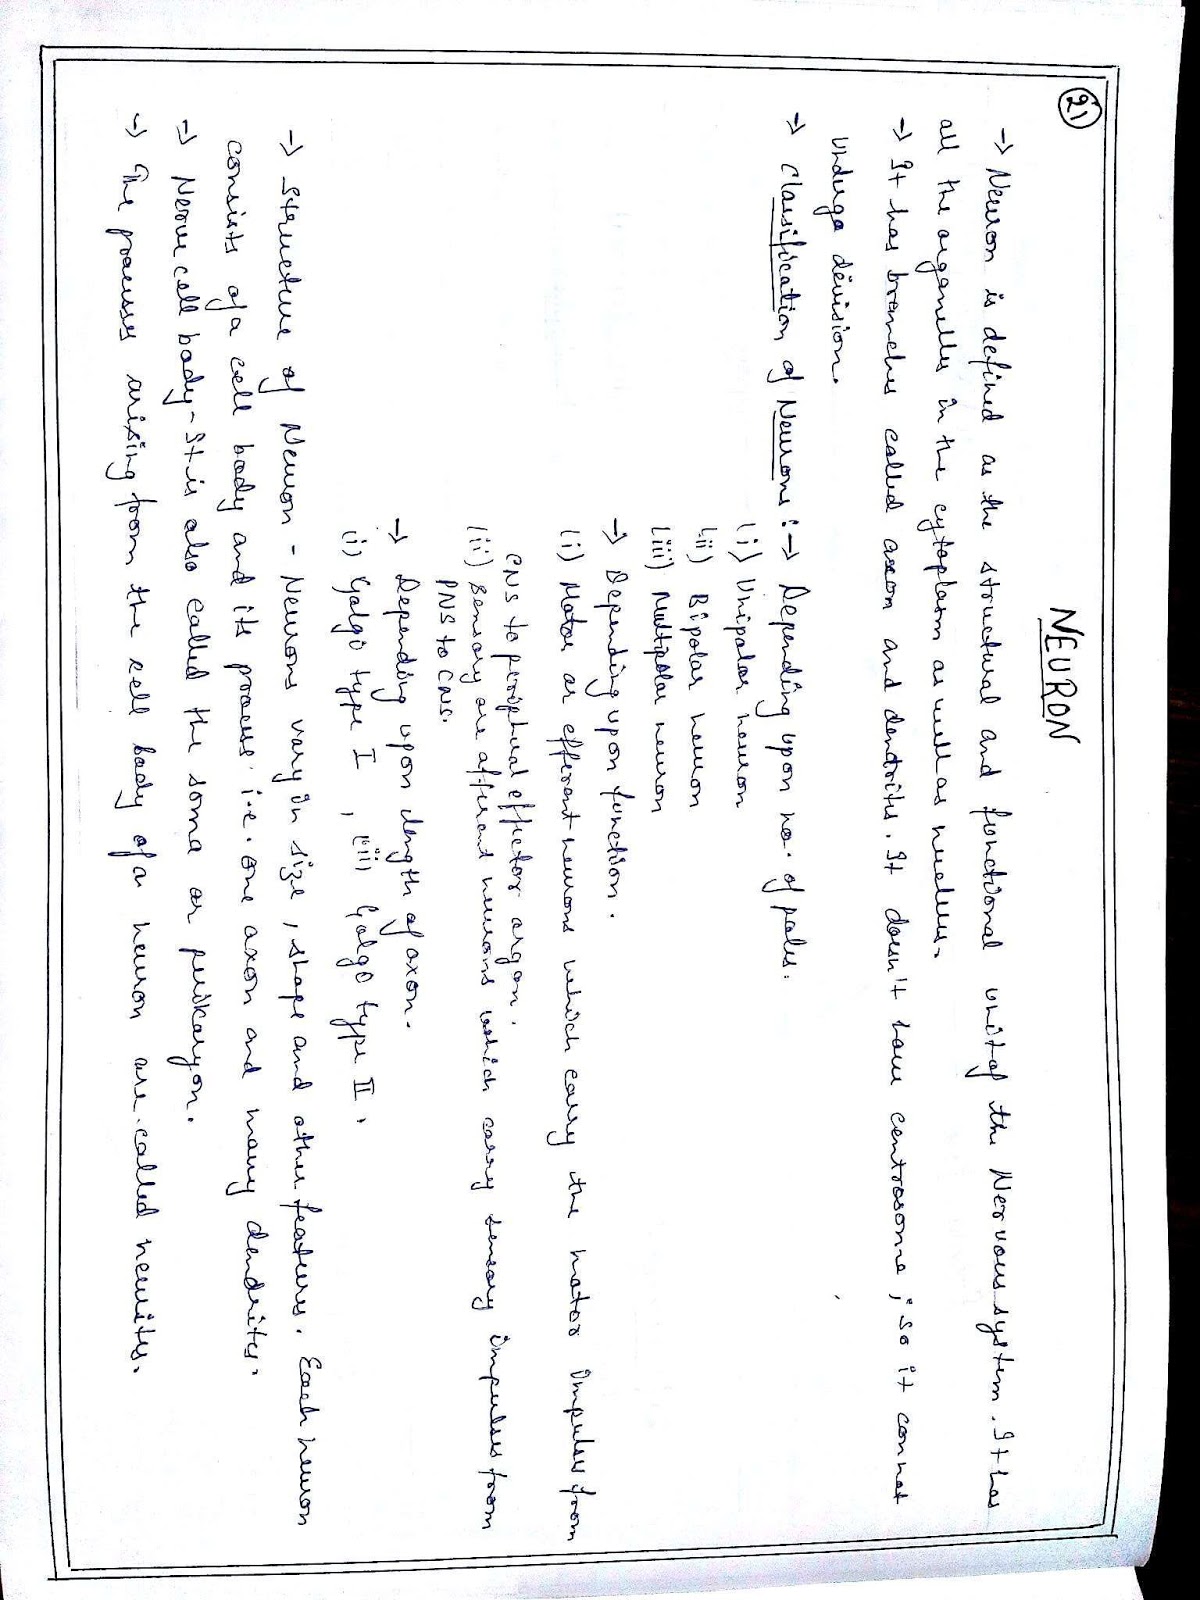 21
NEURON
→ Neuron is defined as the structural and functional unit of the Nervous system. It has
all the organelles in the cytoplasm as well as nucleus.
→ It has branches called axon and dendrites. It doesn't have centrosome ; so it cannot
undergo division.
→ Classification of Neurons :→ Depending upon no. of poles.
(i) Unipolar neuron
(ii) Bipolar neuron
(iii) Multipolar neuron
→ Depending upon function.
(i) Motor or efferent neurons which carry the motor impulses from
CNS to peripheral effector organ.
(ii) Sensory are afferent neurons which carry sensory impulses from
PNS to CNS.
→ Depending upon length of axon.
(i) Golgi type I , (ii) Golgi type II.
→ Structure of Neuron - Neurons vary in size, shape and other features. Each neuron
consists of a cell body and its process i.e. one axon and many dendrites.
→ Nerve cell body - It is also called the soma or perikaryon.
→ The processes arising from the cell body of a neuron are called neurites.